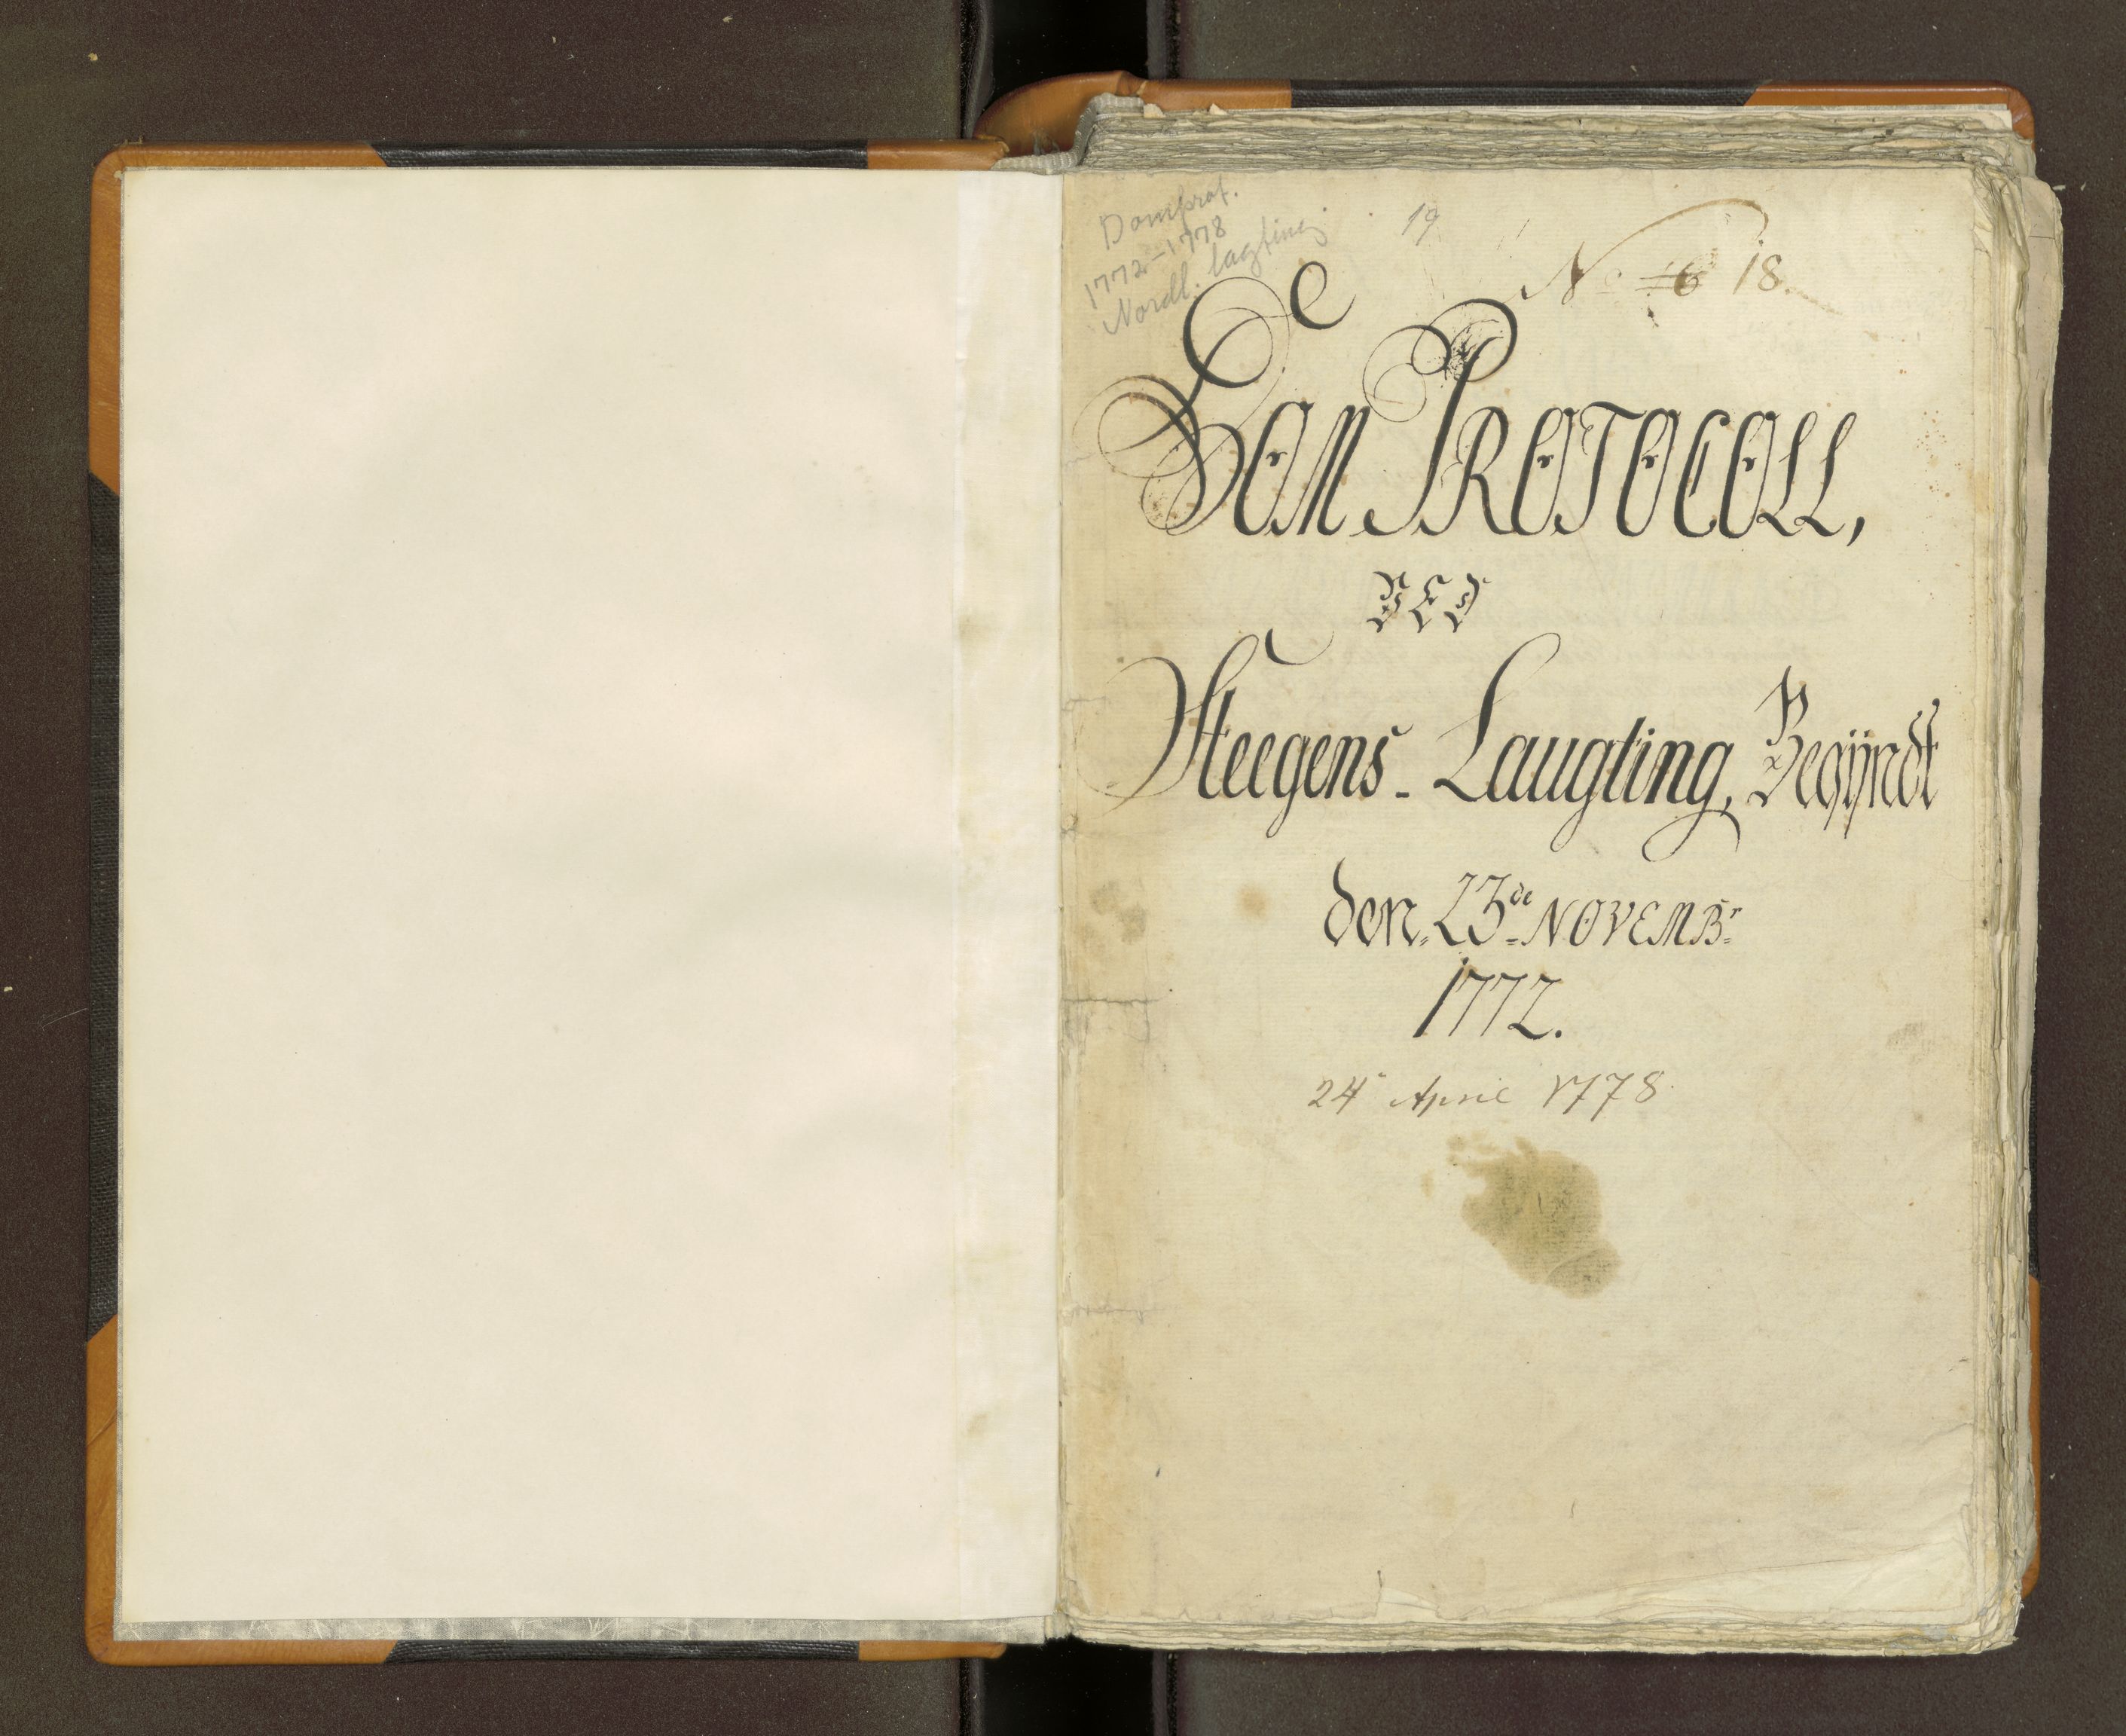 Domprot.
1772-1778
Nordl. lagting.
19
No 16 18.
Dom Protocoll,
VED
Steegens - Laugting, Begÿndt
den 23de Novembr
1772.
24' April 1778